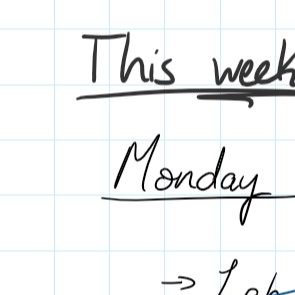 This week
Monday